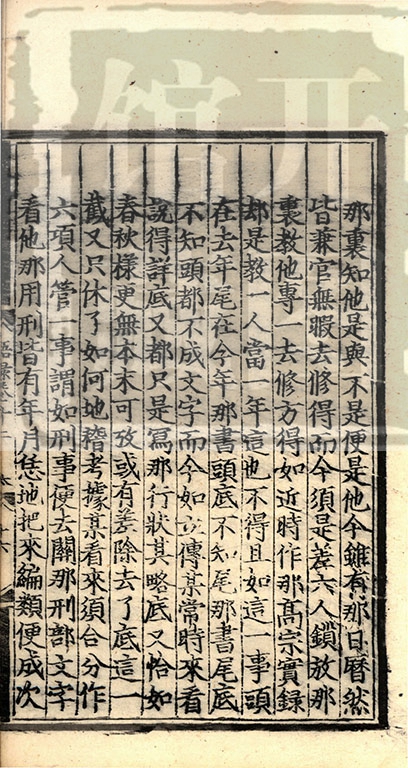 那裏知他是與不是便是他今雖有那日曆然
皆兼官無暇去修得而今須是差六人鎖放那
裏教他專一去修方得如近時作那高宗實録
却是教一人當一年這也不得且如這一事頭
在去年尾在今年那書頭底不知尾那書尾底
不知頭都不成文字而今如立傳某常時來看
說得詳底又都只是寫那行狀其略底又恰如
春秋様更無本末可攷或有差除去了底這一
截又只休了如何地稽考據某看來須合分作
六項人管一事謂如刑事便去關那刑部文字
看他那用刑皆有年月恁地把來編類便成次
語録卷十二